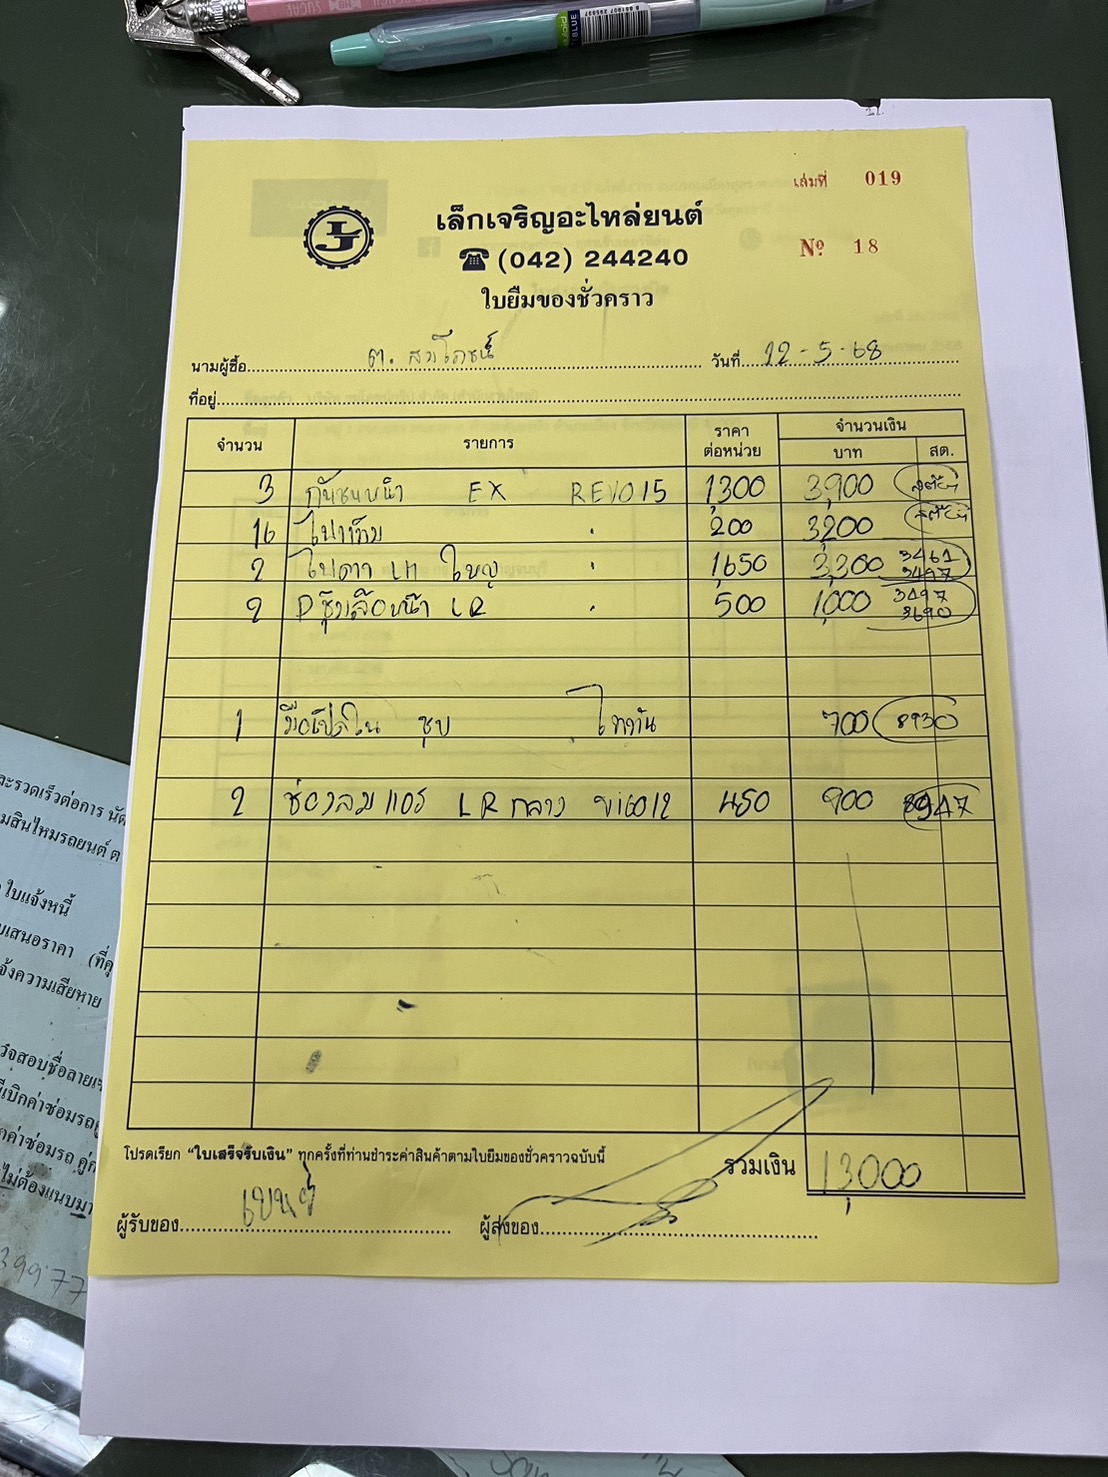 เล่มที่ 019
LJ
เล็กเจริญอะไหล่ยนต์
(042) 244240
Nº 18
ใบยืมของชั่วคราว
นามผู้ซื้อ ต. วันที่ 12-5-68
ที่อยู่
จำนวน รายการ ราคาต่อหน่วย จำนวนเงิน บาท สต.
3 กันชนหน้า EX REVO15 1,300 3,900
16 200 3,200
2 ไฟตา ใหญ่ 1,650 3,300 3461 3497
2 หน้า LR 500 1,000 3497 3690
1 ชุบ ไททัน 700 8930
2 ช่องลมแอร์ LR กลาง VIGO12 450 900 8947
โปรดเรียก “ใบเสร็จรับเงิน” ทุกครั้งที่ท่านชำระค่าสินค้าตามใบยืมของชั่วคราวฉบับนี้
รวมเงิน 13,000
ผู้รับของ ผู้ส่งของ
ละรวดเร็วต่อการ นัด
มสินไหมรถยนต์ ต
ใบแจ้งหนี้
บเสนอราคา (ที่คู
จ้งความเสียหาย
วจสอบชื่อลายเซ
ไม่ต้องแนบมา
39977